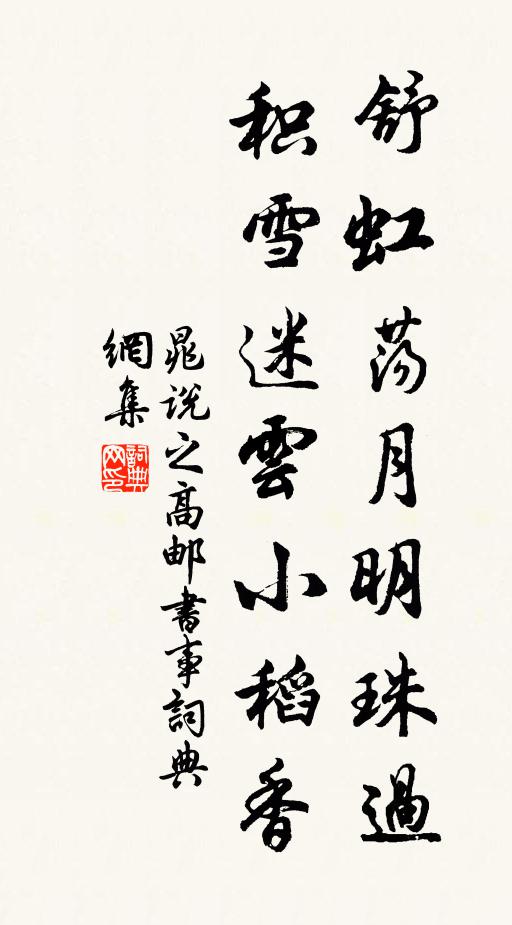 舒虹荡月明珠過
积雪迷雲小稻香
晁说之高邮書事詞典
網集
詞典
网印